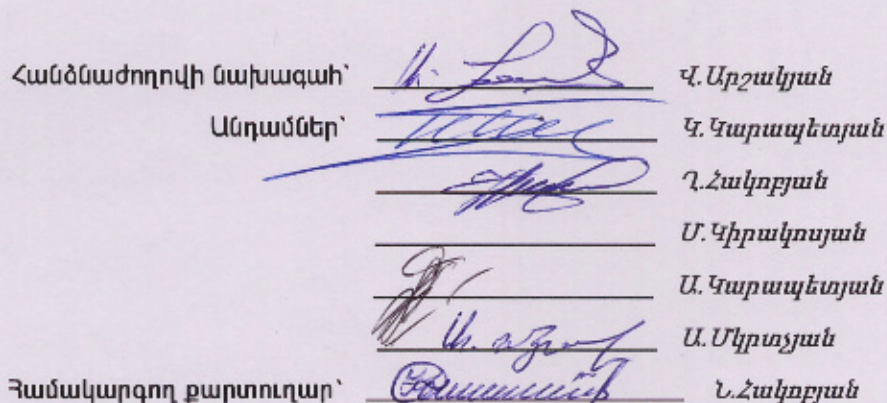 Հանձնաժողովի նախագահ՝ Վ.Արշակյան
Անդամներ՝ Կ.Կարապետյան
Ղ.Հակոբյան
Մ.Կիրակոսյան
Ա.Կարապետյան
Ա.Մկրտչյան
Համակարգող քարտուղար՝ Ն.Հակոբյան